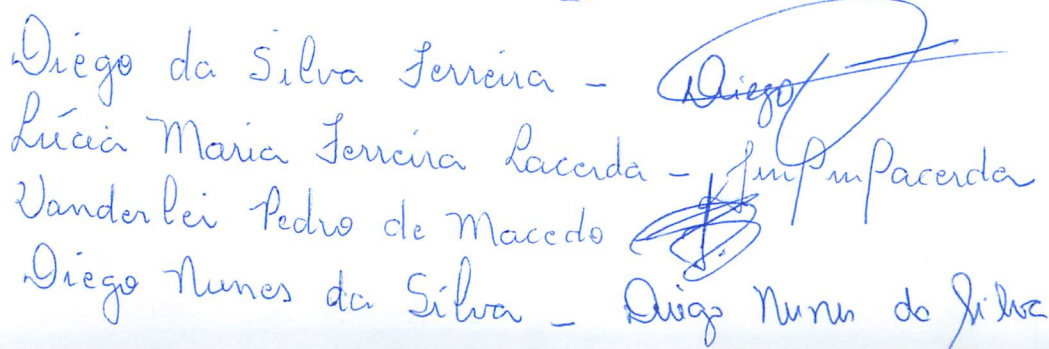 Diego da Silva Ferreira - Diego
Lúcia Maria Ferreira Lacerda -
Vanderlei Pedro de Macedo
Diego Nunes da Silva - Diego Nunes da Silva